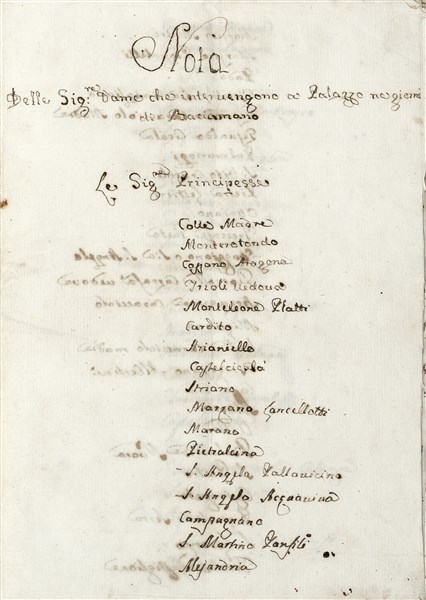 Nota
Delle Sig:re Dame che intervengono a Palazzo ne giorni
di Baciamano
Le Sig:re Principesse
Colle Madre
Monterotondo
Coppano Aragona
Trioli Vedova
Monteleone Piatti
Cardito
Arianiello
Castelcicala
Striano
Marzano Lancellotti
Marano
Pietralcina
S. Angelo Pallavicino
S. Angelo Acquaviva
Campagnano
S. Martino Panfili
Alejandria